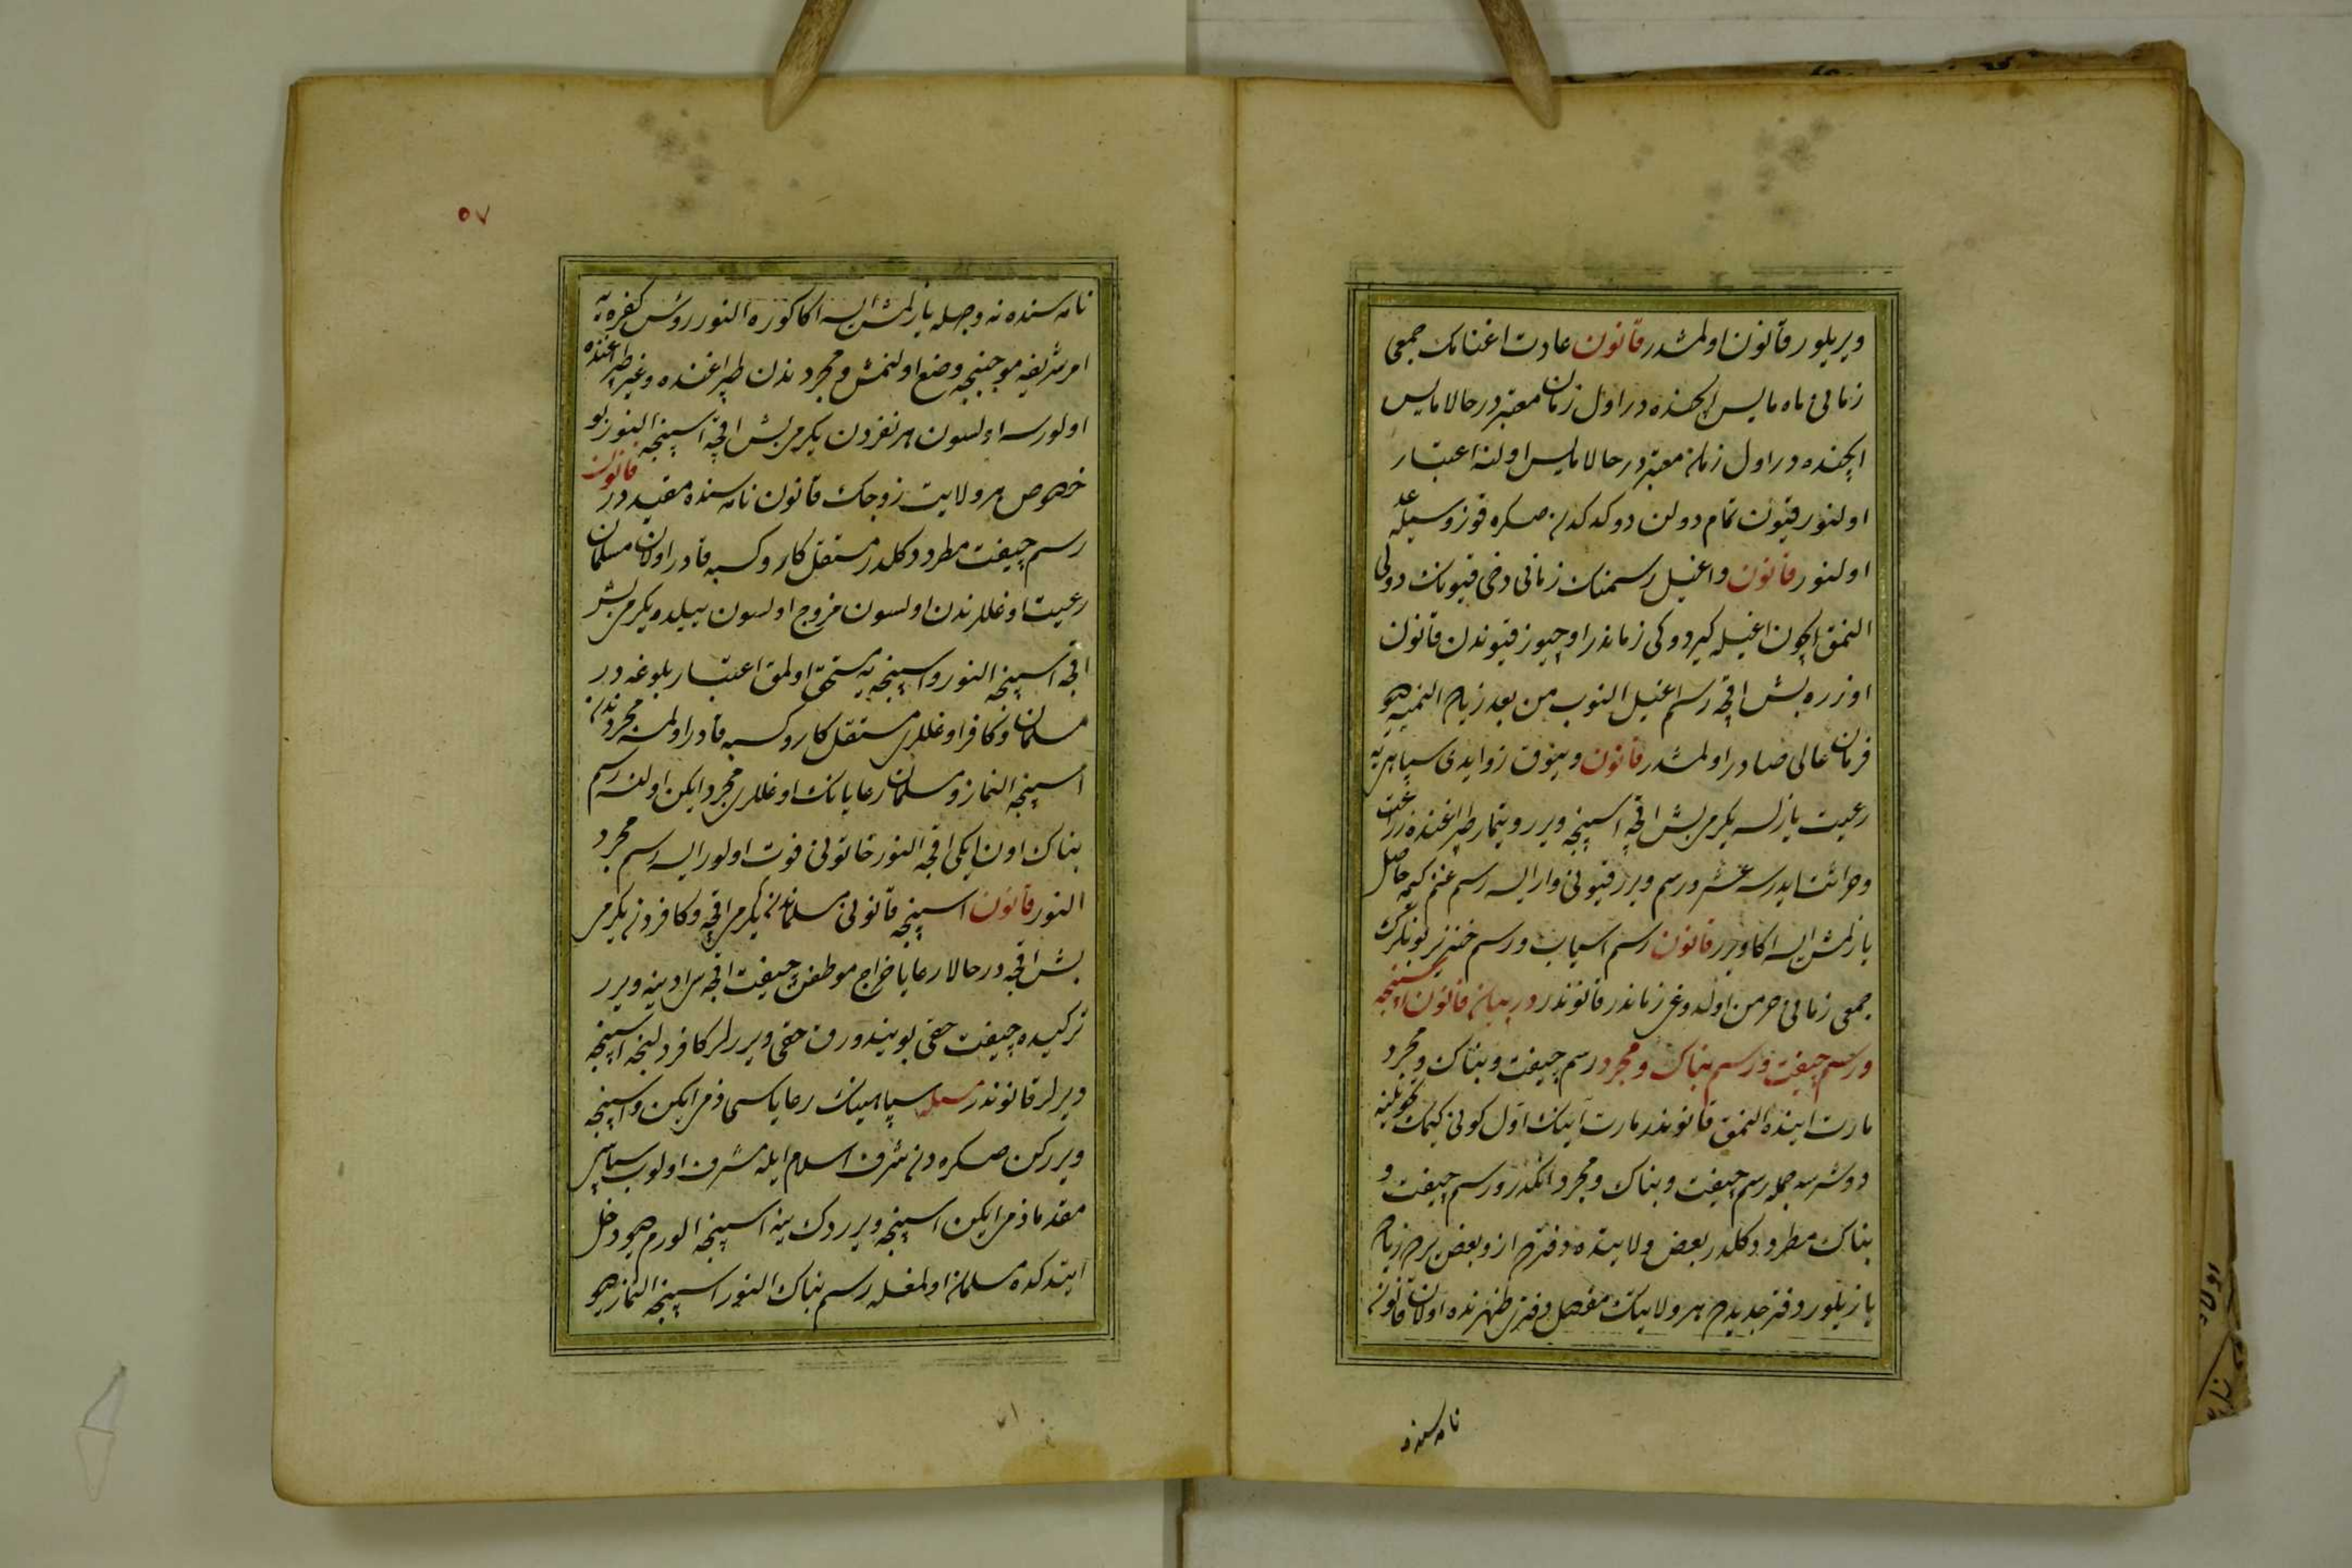 ویریلور قانون اولمشدر قانون عادت اغنامک جمعی
زمانی ماه مایس ایچنده در اول زمان معتبر در حالا مایس
ایچنده در اول زمان معتبر در حالا مایس اولنه اعتبار
اولنور قیون تمام دولن دوکدکدن صکره قوزوسیله عد
اولنور قانون و اغیل رسمنک زمانی دخی قیونک دولی
النمق ایچون اغیله کیردوکی زماندر اوچیوز قیوندن قانون
اوزره بش اقچه رسم اغیل النوب من بعد زیاده النمیه دیو
فرمان عالی صادر اولمشدر قانون و یورق زوایدی سپاهی یه
رعیت یازلسه یکرمی بش اقچه اسپنجه ویرر و تیمار طپراغنده زراعت
و حراثت ایدرسه عشر و رسم ویرر قیونی وار ایسه رسم غنم کیمه حاصل
یازلمش ایسه اکا ویرر قانون رسم اسیاب و رسم خنزیر بونلرک
جمعی زمانی خرمن اولدوغی زماندر قانوندر در بیان قانون اسپنجه
و رسم چیفت و رسم بناک و مجرد رسم چیفت و بناک و مجرد
مارت اینده النمق قانوندر مارت آینک اول کونی کیمک تحویلینه
دوشرسه جمله رسم چیفت و بناک و مجرد انکدر و رسم چیفت و
بناک مطرد دکلدر بعض ولایتده دفترده از و بعض یرده زیاده
یازیلور دفتر جدیدده هر ولایتک مفصل دفتری ظهرنده اولان قانون
نامه سنده
۵۷
نامه سنده نه وجهله یازلمش ایسه اکا کوره النور روئس کفره یه
امر شریفه موجبنجه وضع اولنمش و مجرد ندن طپراغنده و غیر طپراغنده
اولورسه اولسون هر نفردن یکرمی بش اقچه اسپنجه النور بو
خصوص هر ولایت زوجک قانون نامه سنده مقید در قانون
رسم چیفت مطرد دکلدر مستقل کار و کسبه قادر اولان مسلمان
رعیت اوغللرندن اولسون مزوج اولسون ییلده یکرمی بش
اقچه اسپنجه النور و اسپنجه یه مستحق اولمق اعتبار بلوغه در
مسلمان و کافر اوغللری مستقل کار و کسبه قادر اولمسه مجردندن
اسپنجه النماز و مسلمان رعایانک اوغللری مجرد ایکن اولنسه رسم
بناک اون ایکی اقچه النور خاتونی فوت اولور ایسه رسم مجرد
النور قانون اسپنجه قانونی مسلماندن یکرمی اقچه و کافردن یکرمی
بش اقچه در حالا رعایا خراج موظفن چیفت اقچه سی ادینه ویرر
ترکیده چیفت حقی بویندورق حقی ویررلر کافر دلنجه اسپنجه
ویرلر قانوندر مسئله سپاهینک رعایاسی ذمی ایکن و اسپنجه
ویررکن صکره دن شرف اسلام ایله مشرف اولوب سپاهی
مقدما ذمی ایکن اسپنجه ویرردک ینه اسپنجه الورم دیو دخل
ایتدکده مسلمان اولمغله رسم بناک النور اسپنجه النماز دیو